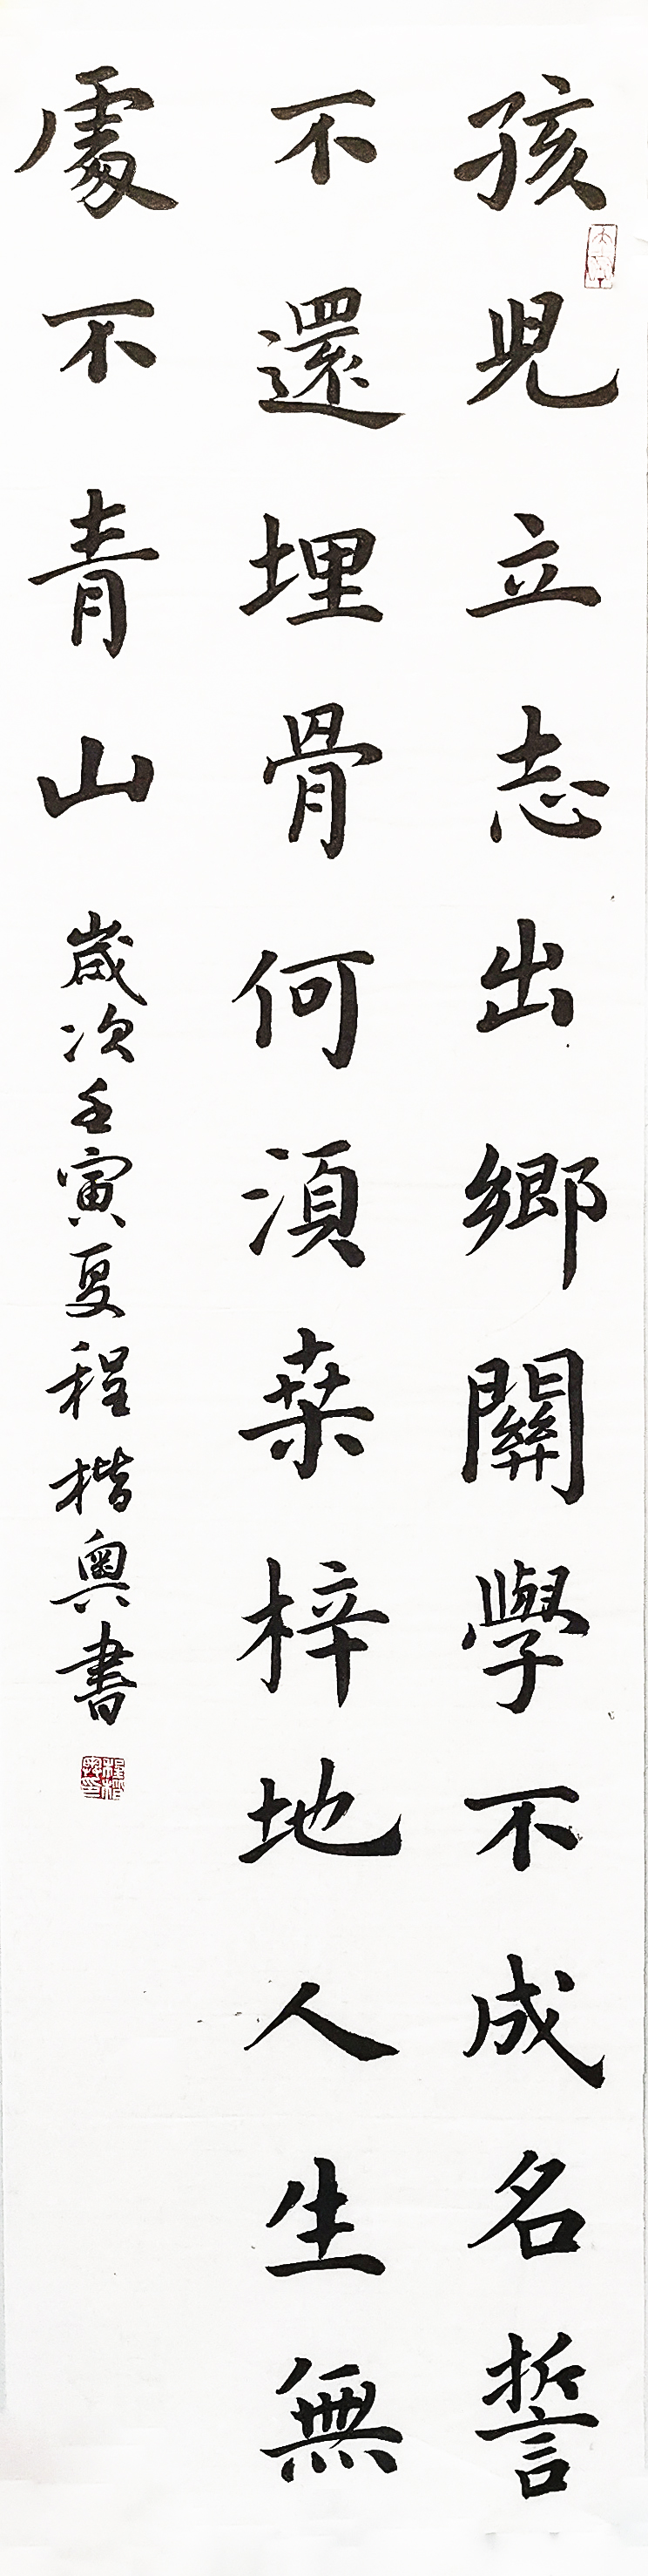 孩兒立志出鄉關學不成名誓
不還埋骨何須桒梓地人生無
處不青山
歲次壬寅夏程楷奥書